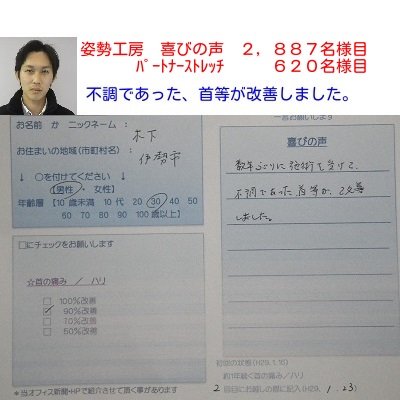 姿勢工房　喜びの声　２，８８７名様目
ﾊﾟｰﾄﾅｰｽﾄﾚｯﾁ　６２０名様目
不調であった、首等が改善しました。
お名前 か ニックネーム：
木下
お住まいの地域(市町村名)：
伊勢市
↓ ○を付けてください ↓
【男性， 女性】
年齢層【10 歳未満 10 代 20 30 40 50
60 70 80 90 100 歳以上】
□にチェックをお願いします
☆首の痛み／ハリ
□ 100％改善
☑ 90％改善
□ 70％改善
□ 50％改善
＊当オフィス新聞やHPで紹介させて頂く事があります
お願いします
喜びの声
数年ぶりに施術を受けて、
不調であった首等が、改善
しました。
初回の状態（H29.1.15）
約1年続く首の痛み／ハリ
2 回目にお越しの際に記入（H29. 1 . 23）